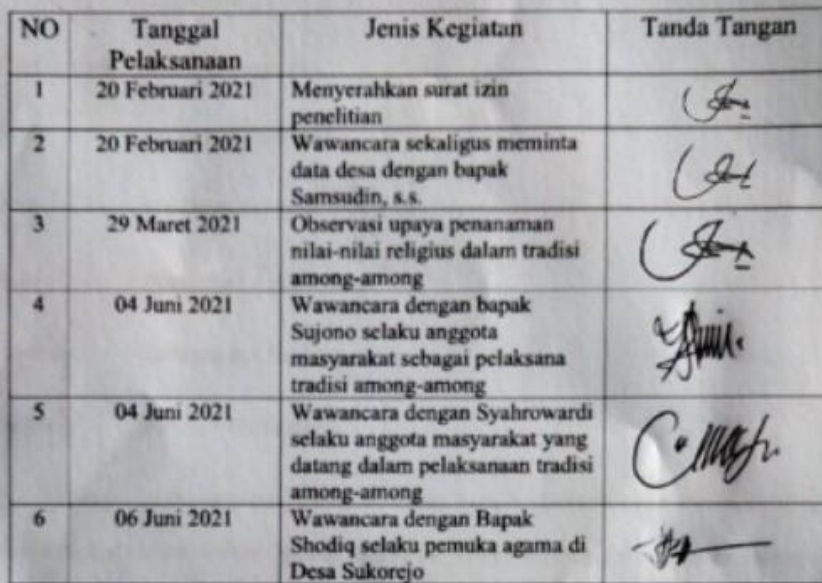 NO Tanggal Jenis Kegiatan Tanda Tangan
Pelaksanaan
1 20 Februari 2021 Menyerahkan surat izin
penelitian
2 20 Februari 2021 Wawancara sekaligus meminta
data desa dengan bapak
Samsudin, s.s.
3 29 Maret 2021 Observasi upaya penanaman
nilai-nilai religius dalam tradisi
among-among
4 04 Juni 2021 Wawancara dengan bapak
Sujono selaku anggota
masyarakat sebagai pelaksana
tradisi among-among
5 04 Juni 2021 Wawancara dengan Syahrowardi
selaku anggota masyarakat yang
datang dalam pelaksanaan tradisi
among-among
6 06 Juni 2021 Wawancara dengan Bapak
Shodiq selaku pemuka agama di
Desa Sukorejo